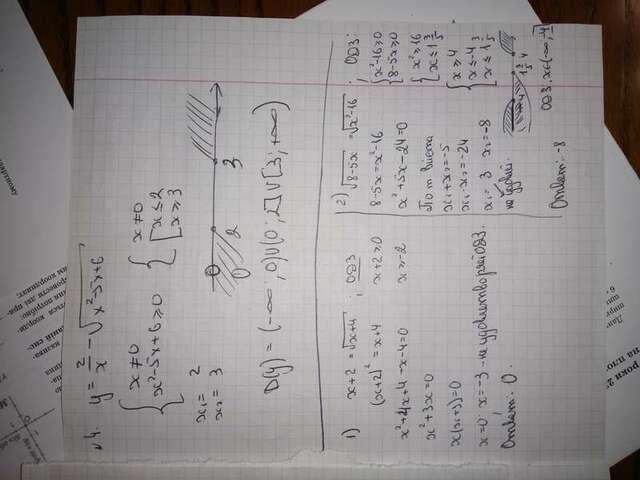 №4. y = 2/x - √(x²-5x+6)
{ x≠0
x²-5x+6≥0
{ x≠0
[ x≤2
x≥3
x₁ = 2
x₂ = 3
0 2 3
D(y) = (-∞; 0)∪(0; 2]∪[3; +∞)
1) x+2 = √(x+4) ; ОДЗ
(x+2)² = x+4 x+2≥0
x²+4x+4-x-4=0 x≥-2
x²+3x=0
x(x+3)=0
x=0 x=-3 - не удовлетворяет ОДЗ.
Ответ: 0.
2) √(8-5x) = √(x²-16) ; ОДЗ:
8-5x=x²-16 { x²-16≥0
8-5x≥0
x²+5x-24=0 { x²≥16
x≤1 3/5
По т Виета
x₁+x₂=-5 { x≥4
x≤-4
x≤1 3/5
x₁·x₂=-24
x₁=3 x₂=-8
не удовл.
-4 1 3/5 4
ОДЗ: x∈(-∞;-4]
Ответ: -8